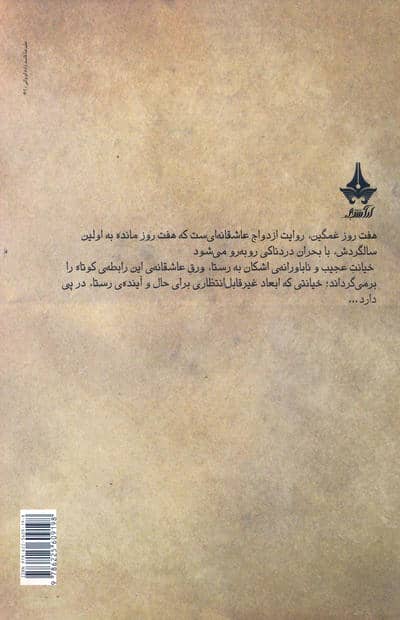 هفت روز غمگین، روایت ازدواج عاشقانه‌ای‌ست که هفت روز مانده به اولین
سالگردش، با بحران دردناکی روبه‌رو می‌شود
خیانت عجیب و ناباورانه‌ی اشکان به رستا، ورق عاشقانه‌ی این رابطه‌ی کوتاه را
برمی‌گرداند؛ خیانتی که ابعاد غیرقابل‌انتظاری برای حال و آینده‌ی رستا، در پی
دارد ...
9 786225 609198